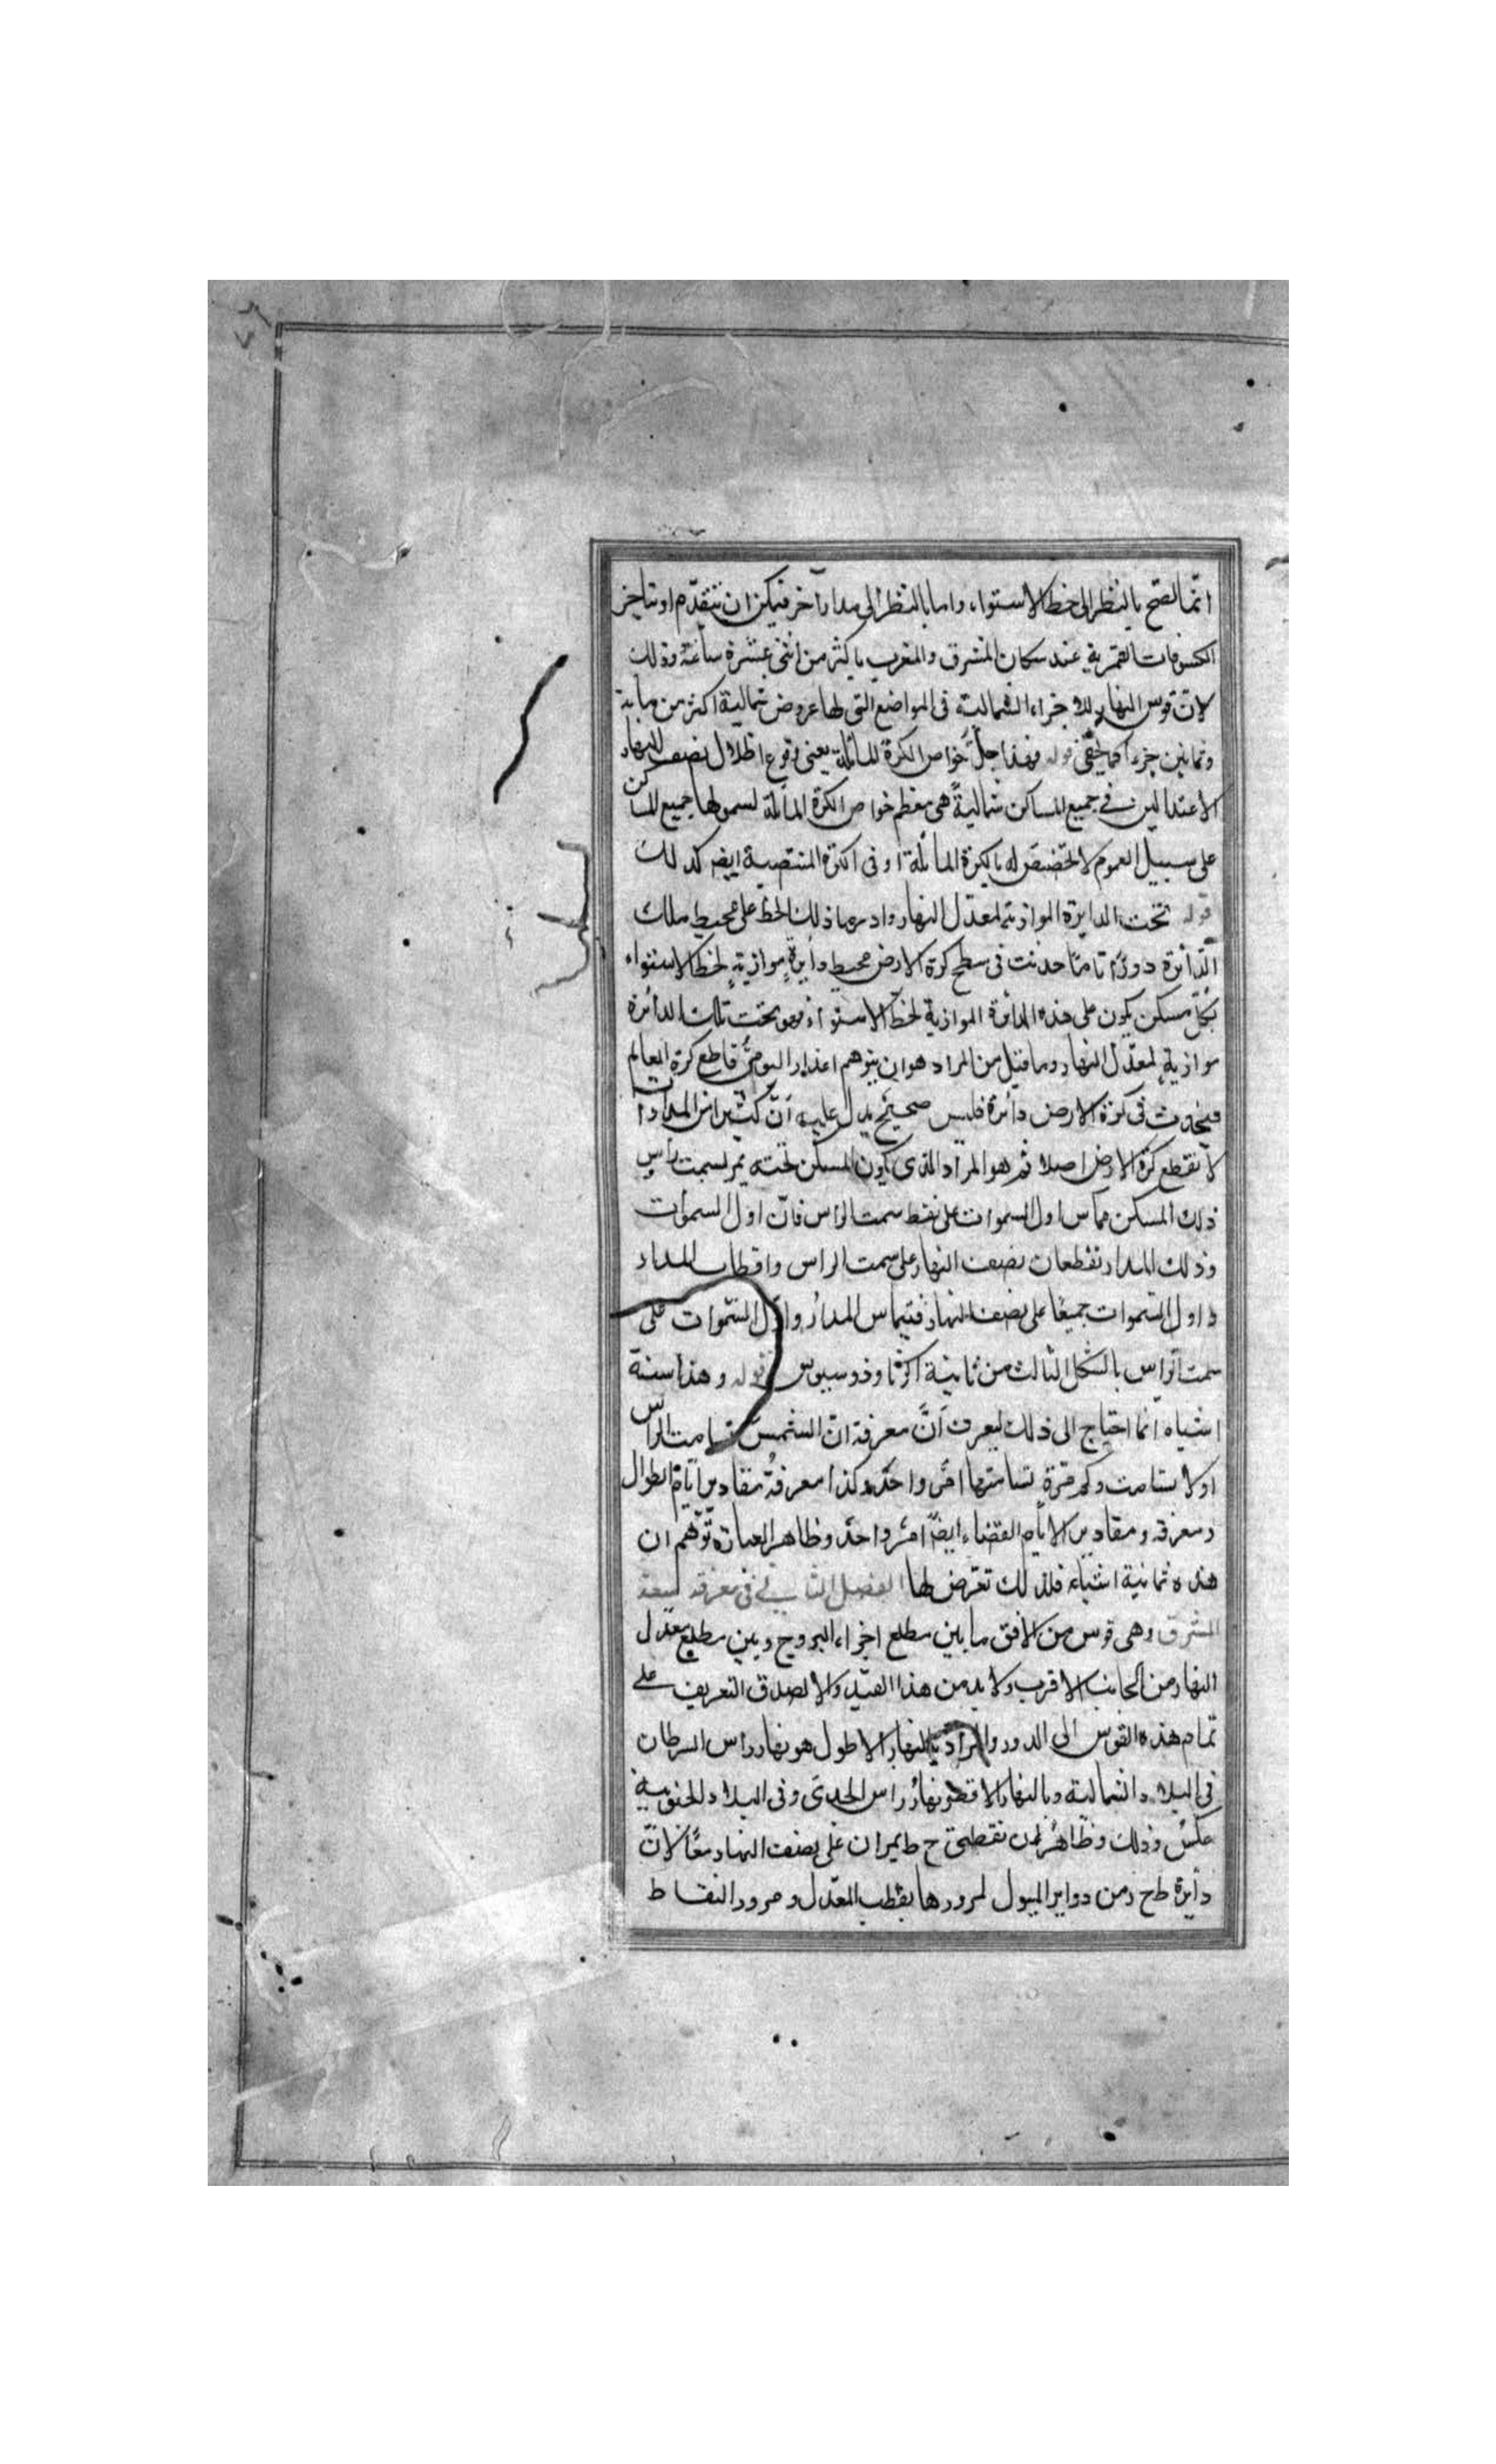 انما يصح بالنظر الى خط الاستواء، واما بالنظر الى مدار آخر فيمكن ان يتقدم او يتاخر
الكسوفات القمرية عند سكان المشرق والمغرب باكثر من اثنى عشرة ساعة وذلك
لان قوس النهار للاجزاء الشمالية فى المواضع التى لها عروض شمالية اكثر من مائة
وثمانين جزءا كما يخفى قوله فهذا جل خواص الكرة المائلة يعنى وقوع اظلال نصف النهار
الاعتدالين فى جميع المساكن شمالية هى معظم خواص الكرة المائلة لشمولها جميع المساكن
على سبيل العموم لا تخصيص له بالكرة المائلة اذ فى الكرة المنتصبة ايضا كذلك
قوله تحت الدايرة الموازية لمعدل النهار واذ ذلك الخط على محيط تلك
الدائرة دورا تاما حدثت فى سطح كرة الارض محيط دائرة موازية لخط الاستواء
بكل مسكن يكون على هذه الدائرة الموازية لخط الاستواء فهو تحت تلك الدائرة
موازية لمعدل النهار وما قيل من المراد هو ان يتوهم المدار اليومى قاطع كرة العالم
فيحدث فى كرة الارض دائرة فليس صحيح يدل عليه ان كثيرا من المدارات
لا تقطع كرة الارض اصلا ثم هو المراد الذى يكون المسكن تحته يمر بسمت راس
ذلك المسكن مماس اول السموات على نقط سمت الراس فان اول السموات
وذلك المدار تقطعان نصف النهار على سمت الراس واقطاب المدار
واول السموات جميعا على نصف النهار فيتماس المدار واول السموات على
سمت الراس بالشكل الثالث من ثانية اكر ثاوذوسيوس قوله وهذا ستة
اشياء انما احتاج الى ذلك ليعرف ان معرفة ان الشمس تسامت الراس
او لا تسامت وكم مرة تسامتها امر واحد وكذا معرفة مقادير ايام الطوال
ومعرفة ومقادير الايام القضاء ايضا امر واحد وظاهر العبارة توهم ان
هذه ثمانية اشياء فلذلك تعرض لها الفصل الثانى فى معرفة سعة
المشرق وهى قوس من الافق ما بين مطلع اجزاء البروج وبين مطلع معدل
النهار من الجانب الاقرب ولا بد من هذا القيد والا لصدق التعريف على
تمام هذه القوس الى الدور والمراد بالنهار الاطول هو نهار راس السرطان
فى البلاد الشمالية وبالنهار الاقصر نهار راس الجدى وفى البلاد الجنوبية
عكس ذلك وظاهر ان نقطتى ح ط يمران على نصف النهار معا لان
دائرة ط ح ز من دواير الميول لمرورها بقطب المعدل ومرور النقاط